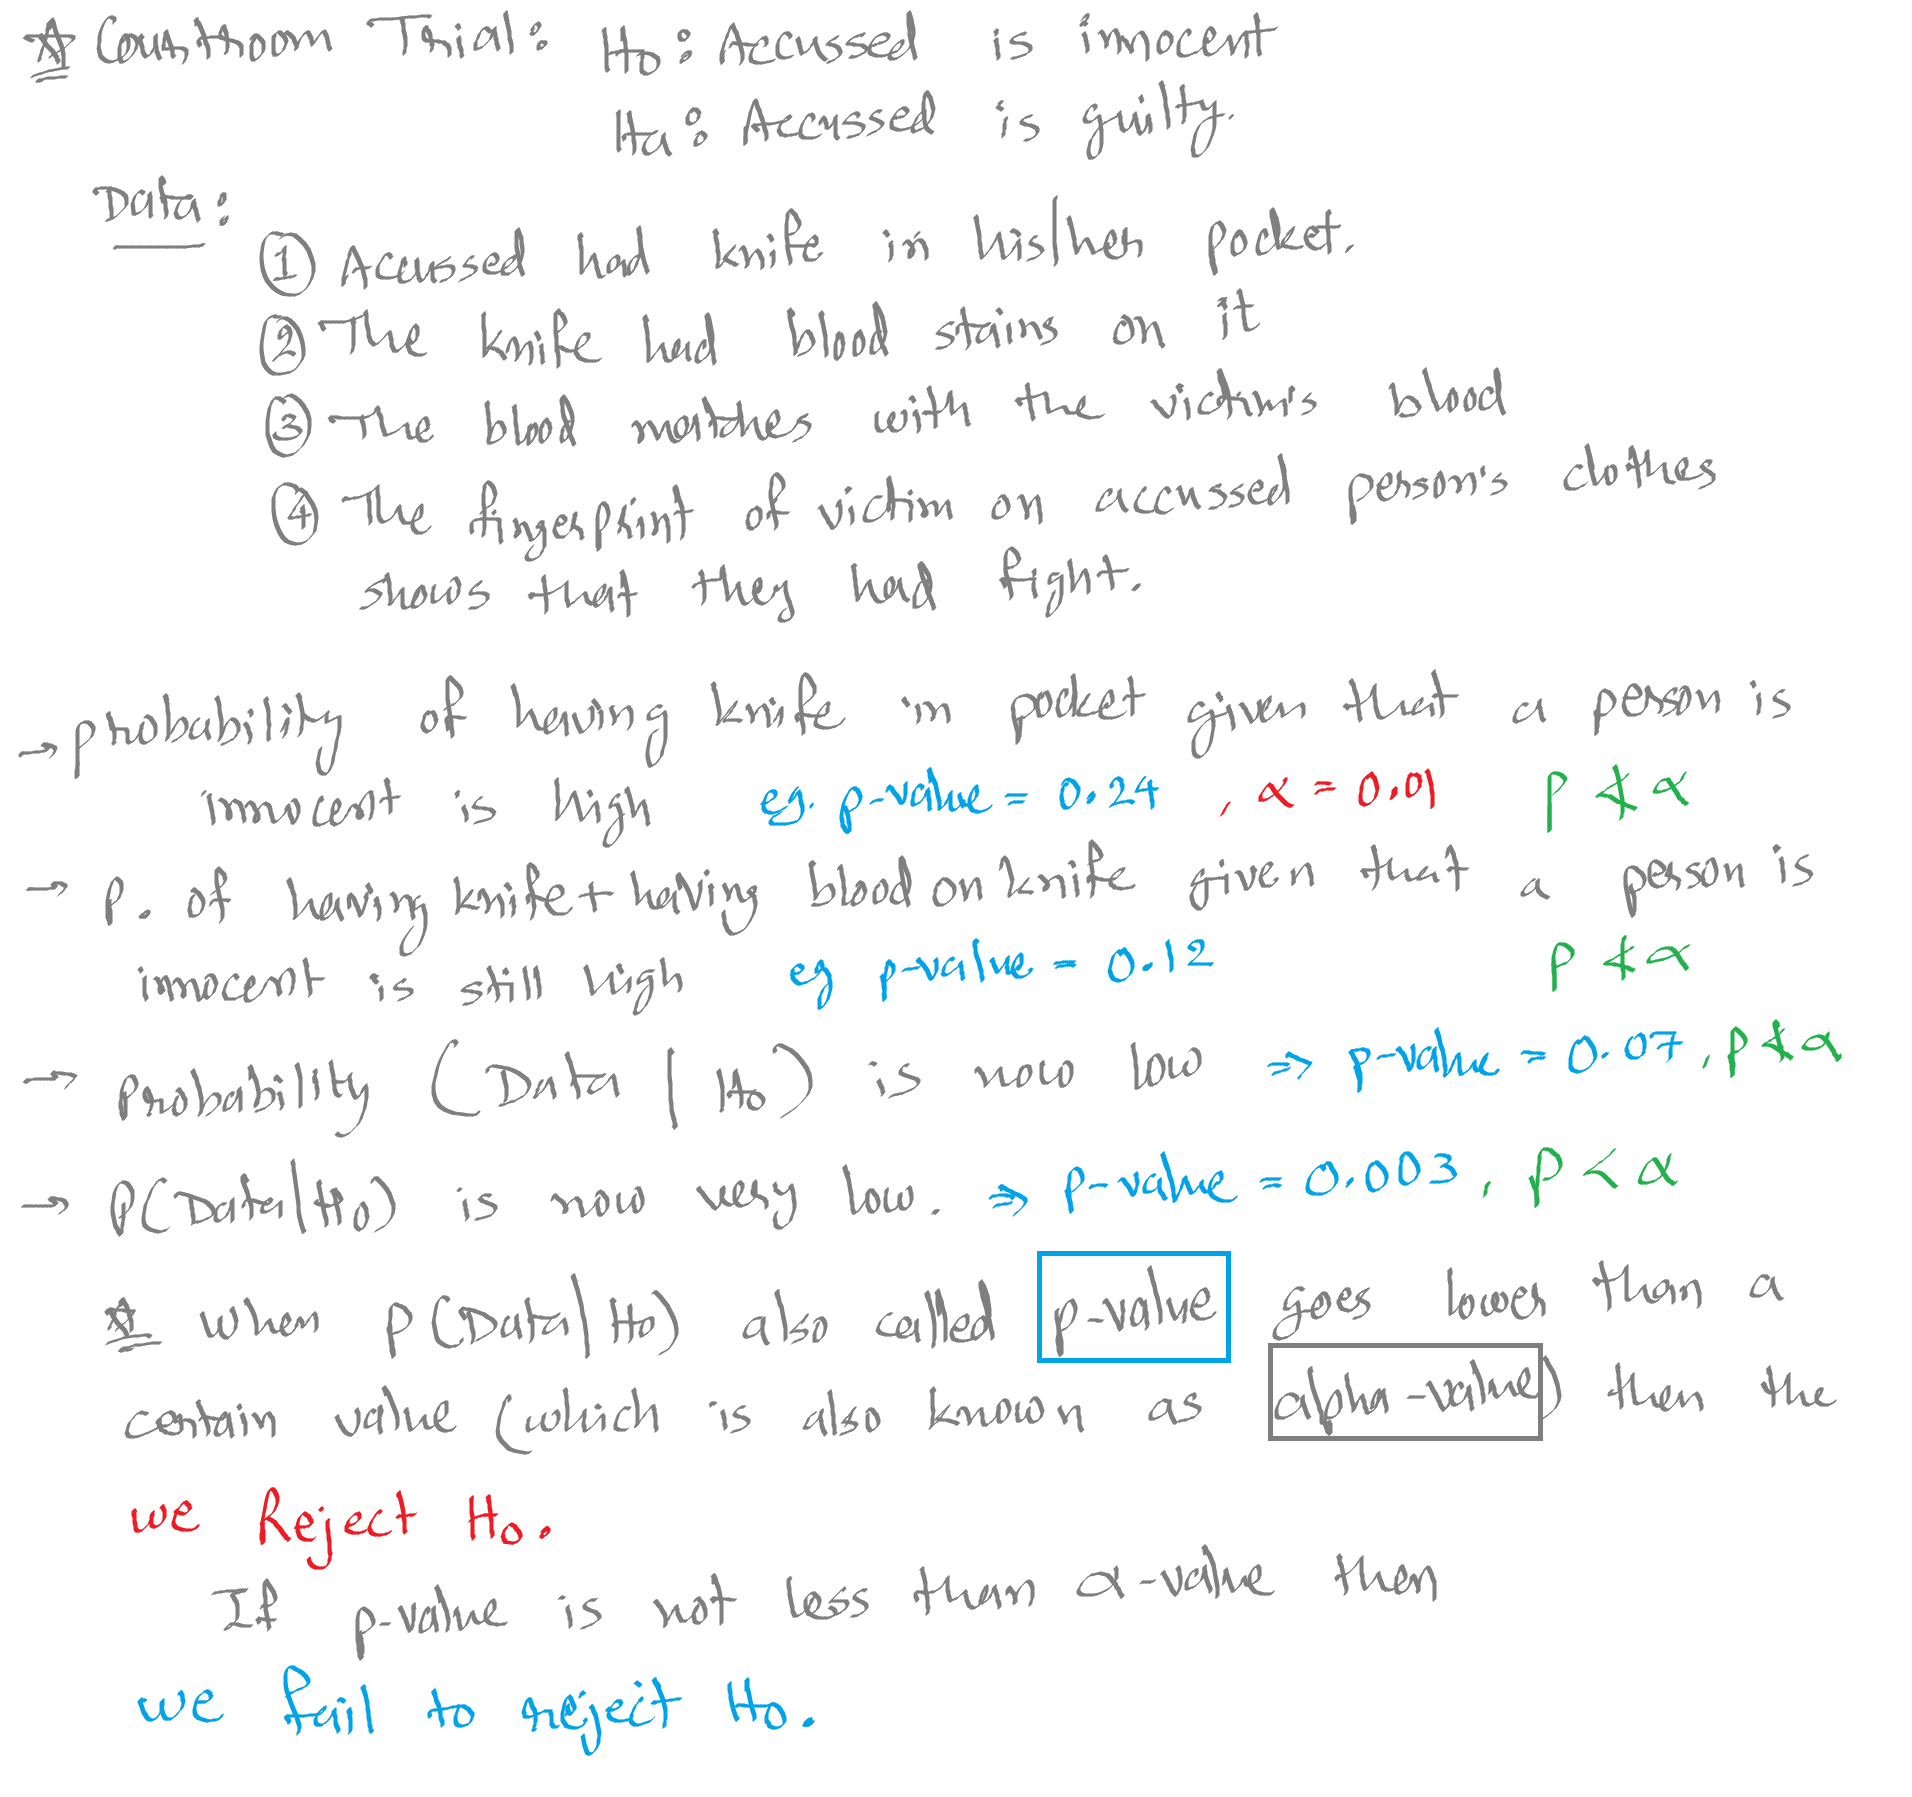 * Courtroom Trial: H₀: Accussed is innocent
Ha: Accussed is guilty.
Data:
① Accussed had knife in his/her pocket.
② The knife had blood stains on it
③ The blood matches with the victim's blood
④ The fingerprint of victim on accussed person's clothes
shows that they had fight.
→ Probability of having knife in pocket given that a person is
innocent is high eg. p-value = 0.24 , α = 0.01 P ≮ α
→ P. of having knife + having blood on knife given that a person is
innocent is still high eg p-value = 0.12 P ≮ α
→ Probability (Data | H₀) is now low ⇒ p-value = 0.07, P ≮ α
→ P(Data|H₀) is now very low. ⇒ p-value = 0.003, P < α
* when P(Data|H₀) also called p-value goes lower than a
certain value (which is also known as alpha-value) then the
we Reject H₀.
If p-value is not less than α-value then
we fail to reject H₀.